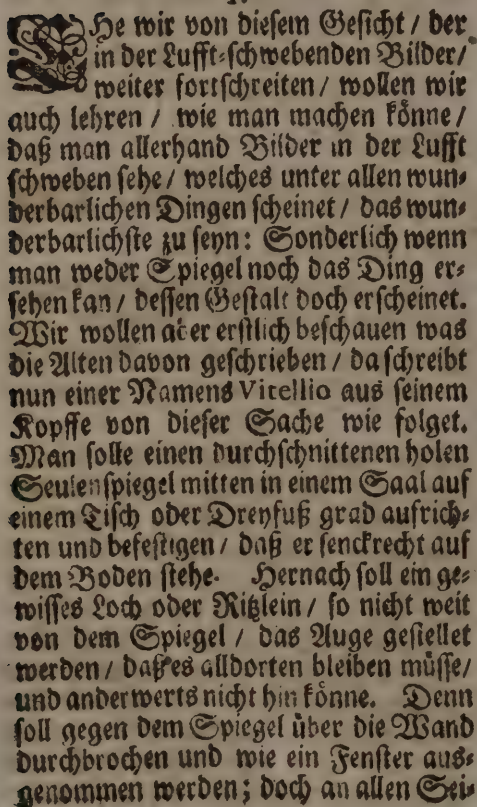 EHe wir von diesem Gesicht / der
in der Lufft-schwebenden Bilder/
weiter fortschreiten / wollen wir
auch lehren / wie man machen könne /
daß man allerhand Bilder in der Lufft
schweben sehe / welches unter allen wun-
derbarlichen Dingen scheinet / das wun-
derbarlichste zu seyn: Sonderlich wenn
man weder Spiegel noch das Ding er-
sehen kan / dessen Gestalt doch erscheinet.
Wir wollen aber erstlich beschauen was
die Alten davon geschrieben / da schreibt
nun einer Namens Vitellio aus seinem
Kopffe von dieser Sache wie folget.
Man solle einen durchschnittenen holen
Seulenspiegel mitten in einem Saal auf
einem Tisch oder Dreyfuß grad aufrich-
ten und befestigen / daß er senckrecht auf
dem Boden stehe. Hernach soll ein ge-
wisses Loch oder Rißlein / so nicht weit
von dem Spiegel / das Auge gestellet
werden / daß es alldorten bleiben müsse /
und anderwerts nicht hin könne. Denn
soll gegen dem Spiegel über die Wand
durchbrochen und wie ein Fenster aus-
genommen werden; doch an allen Sei-